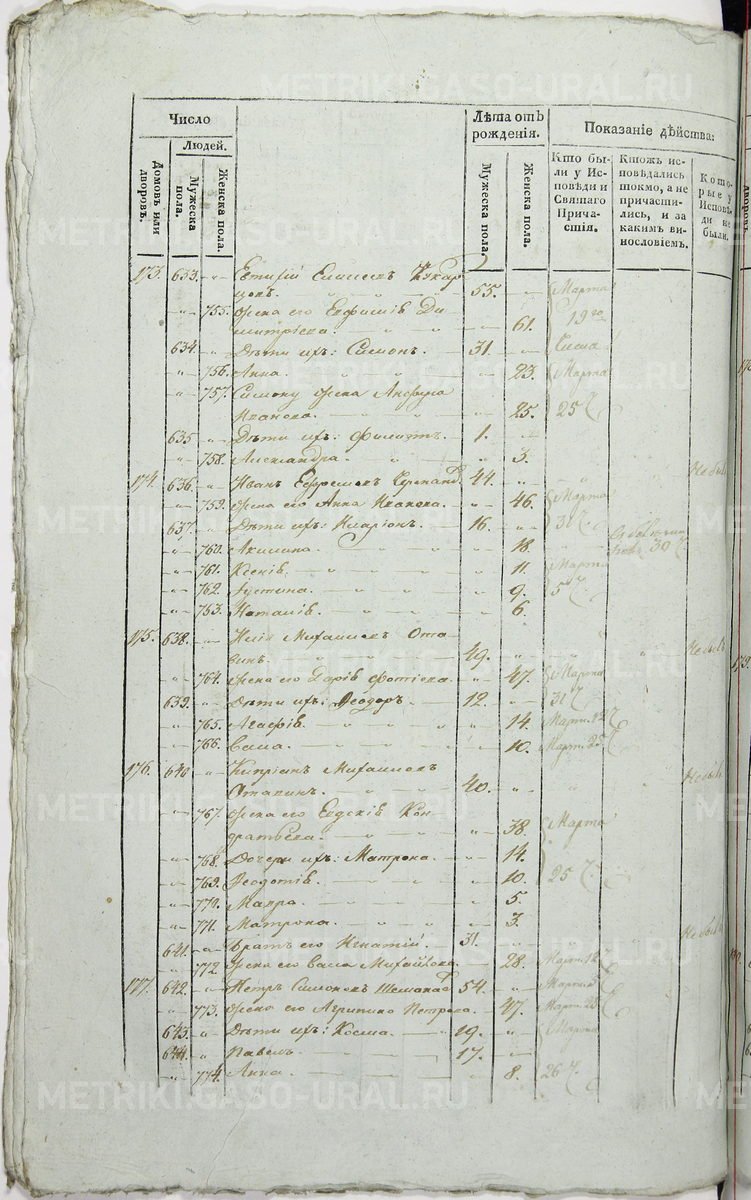 METRIKI.GASO-URAL.RU
Число
Людей.
Домовъ или дворовъ.
Мужеска пола.
Женска пола.
Лѣта отъ рожденія.
Мужеска пола.
Женска пола.
Показаніе дѣйства:
Кто были у Исповѣди и Святаго Причастія.
Ктожъ исповѣдались токмо, а не причастились, и за какимъ винословіемъ.
Которые у Исповѣди не были.
173. 633. Евтихій
55. Марта
755. Жена его Евфимія Ди
митріева. 61. 19
634. Дѣти ихъ: Симонъ. 31.
756. Анна. 23. Марта
757. Симону жена
Иванова. 25. 25
635 Дѣти ихъ: 1.
758. Александра. 3.
174. 636. Иванъ Ефремовъ 44. Не былъ
759. Жена его Анна Иванова. 46. Марта
637. Дѣти ихъ: Иларіонъ. 16. 31
760. Акилина. 18. 30
761. Ксенія. 11. Марта
762. Іустина. 9. 5
753. Наталія. 6.
175. 638. Илія Михайловъ Ота
49. Не былъ
764. Жена его Дарія Фотіева. 47. Марта
639. Дѣти ихъ: Ѳеодоръ. 12. 31
765. Агафія. 14. Март. 12
766. Васса. 10. Март. 25
176. 640 Кипріанъ Михайловъ
40. Не былъ
767. Жена его Евдокія Кон
дратьева. 38. Марта
768. Дочери ихъ: Матрона. 14.
769. Ѳеодотія. 10. 25
770. Мавра. 5.
771. Матрона. 3.
641. Братъ его Игнатій. 31. Не былъ
772. Жена его Васса Михайлова. 28. Март. 12
177. 642. Петръ Симоновъ 54. Марта
773. Жена его Агрипина Петрова. 47. Март. 25
643. Дѣти ихъ: Косма. 19. Марта
644. Павелъ. 17.
774. Анна. 8. 26